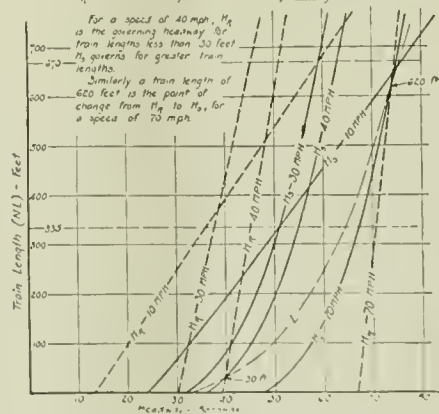 For a speed of 40 mph, HR
is the governing headway for
train lengths less than 30 feet
HS governs for greater train
lengths.
Similarly a train length of
620 feet is the point of
change from HR to HS, for
a speed of 70 mph.
700
670
600
500
400
333
300
200
100
Train Length (NL) - Feet
HR - 10 MPH
HR - 30 MPH
HR - 40 MPH
HS - 30 MPH
HS - 40 MPH
HS - 10 MPH
HR - 70 MPH
620
L
30
10
20
30
40
50
60